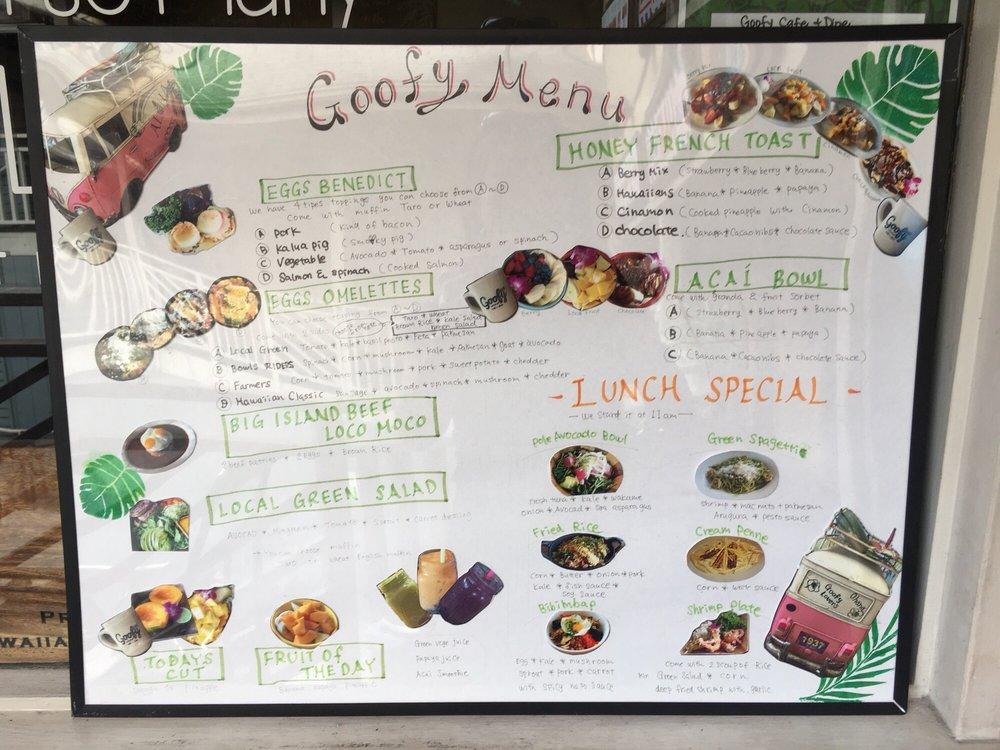 Goofy Cafe & Dine
Goofy Menu
EGGS BENEDICT
We have 4 tipes toppings you can choose from Ⓐ~Ⓓ
come with muffin Taro or Wheat
Ⓐ Pork (kind of bacon)
Ⓑ Kalua pig (Smoky pig)
Ⓒ Vegetable (Avocado * Tomato * asparagus or spinach)
Ⓓ Salmon & spinach (Cooked Salmon)
EGGS OMELETTES
Taro * Wheat
Brown Rice * Kale Salad
Green Salad
Ⓐ Local Green Tomato * kale * basil pesto * Feta * Parmesan
Ⓑ Bowls RIDERS Spinach * corn * mushroom * kale * Parmesan * goat * avocado
Ⓒ Farmers Corn * Tomato * mushroom * pork * sweet potato * chedder
Ⓓ Hawaiian Classic Sausage * avocado * spinach * mushroom * chedder
BIG ISLAND BEEF
LOCO MOCO
2 beef patties * 2 eggs * Brown Rice
LOCAL GREEN SALAD
TODAYS
CUT
FRUIT of
THE DAY
Green vege Juice
Papaya juice
Acai Smoothie
HONEY FRENCH TOAST
Ⓐ Berry Mix (Strawberry * Blue berry * Banana)
Ⓑ Hawaiians (Banana * pineapple * papaya)
Ⓒ Cinamon (Cooked pineapple with Cinamon)
Ⓓ chocolate. (Banana * Cacao nibs * Chocolate Sauce)
AÇAÍ BOWL
come with granola & fruit Sorbet
Ⓐ (Strawberry * Blue berry * Banana)
Ⓑ (Banana * Pine Apple * papaya)
Ⓒ (Banana * Cacao nibs * chocolate Sauce)
- LUNCH SPECIAL -
— We Start it at 11am —
Poke Avocado Bowl
Fresh tuna * kale * wakame
onion * Avocado * Sea asparagus
Green Spagetti
Shrimp * mac nuts * parmesan
Arugura * pesto sauce
Fried Rice
Corn * Butter * onion * pork
Kale * fish sauce *
Soy Sauce
Cream Penne
Bibimbap
Egg * Kale * mushroom
Sprout * pork * carrot
with spicy miso sauce
Shrimp Plate
come with 2 scoup of Rice
Green Salad * corn
deep fried shrimp with garlic
Goofy
Goofy
Goofy
Goofy
Goofy
Lovers
Ohana
1937